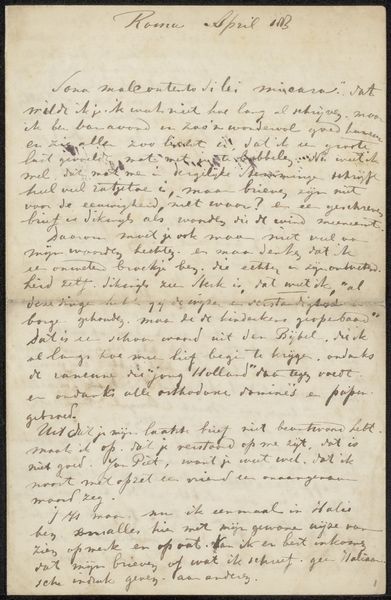 Roma April 188
Sono malcontento di lei mia cara". dat
wilde ik je ik weet niet hoe lang al schrijven. maar
ik ben van avond in zoo'n wondervol goed humeur
en zie alles zoo licht in, dat ik een groote
lust gevoelde met je te babbelen. Nu weet ik
wel dat men in dergelijke stemmingen schrijft
heel veel is, maar brieven zijn niet
voor de eeuwigheid, niet waar? en een geschreven
brief is dikwijls als woorden die de wind meeneemt.
Daarom moet je ook maar niet veel aan
mijn woorden hechten en maar denken dat ik
een onwetend broekje ben, die echter in zijn onwetend-
heid zelf dikwijls zeer sterk is, dat weet ik, "al
deze dingen hebt gij de wijzen en verstandigen
borgen gehouden, maar de kinderkens geopenbaard"
Dat is een schoon woord uit den Bijbel, die ik
al langs hoe meer lief begin te krijgen, ondanks
de rancune die "jong Holland" daartegen voedt
en ondanks alle orthodoxe dominés en papen
gebroed.
Uit dat je mijn laatste brief niet beantwoord hebt
maak ik op, dat je verstoord op me zijt, dat is
niet goed van Piet, want je weet wel, dat ik
nooit met opzet een vriend een onaangenaam
woord zeg.
maar, nu ik eenmaal in Italië
ben en alles hier met mijn gewone wijze van
zien opmerk en opvat, kan ik er best inkomen
dat mijn brieven of wat ik schreef geen Italiaan-
sche indruk geven aan anderen.